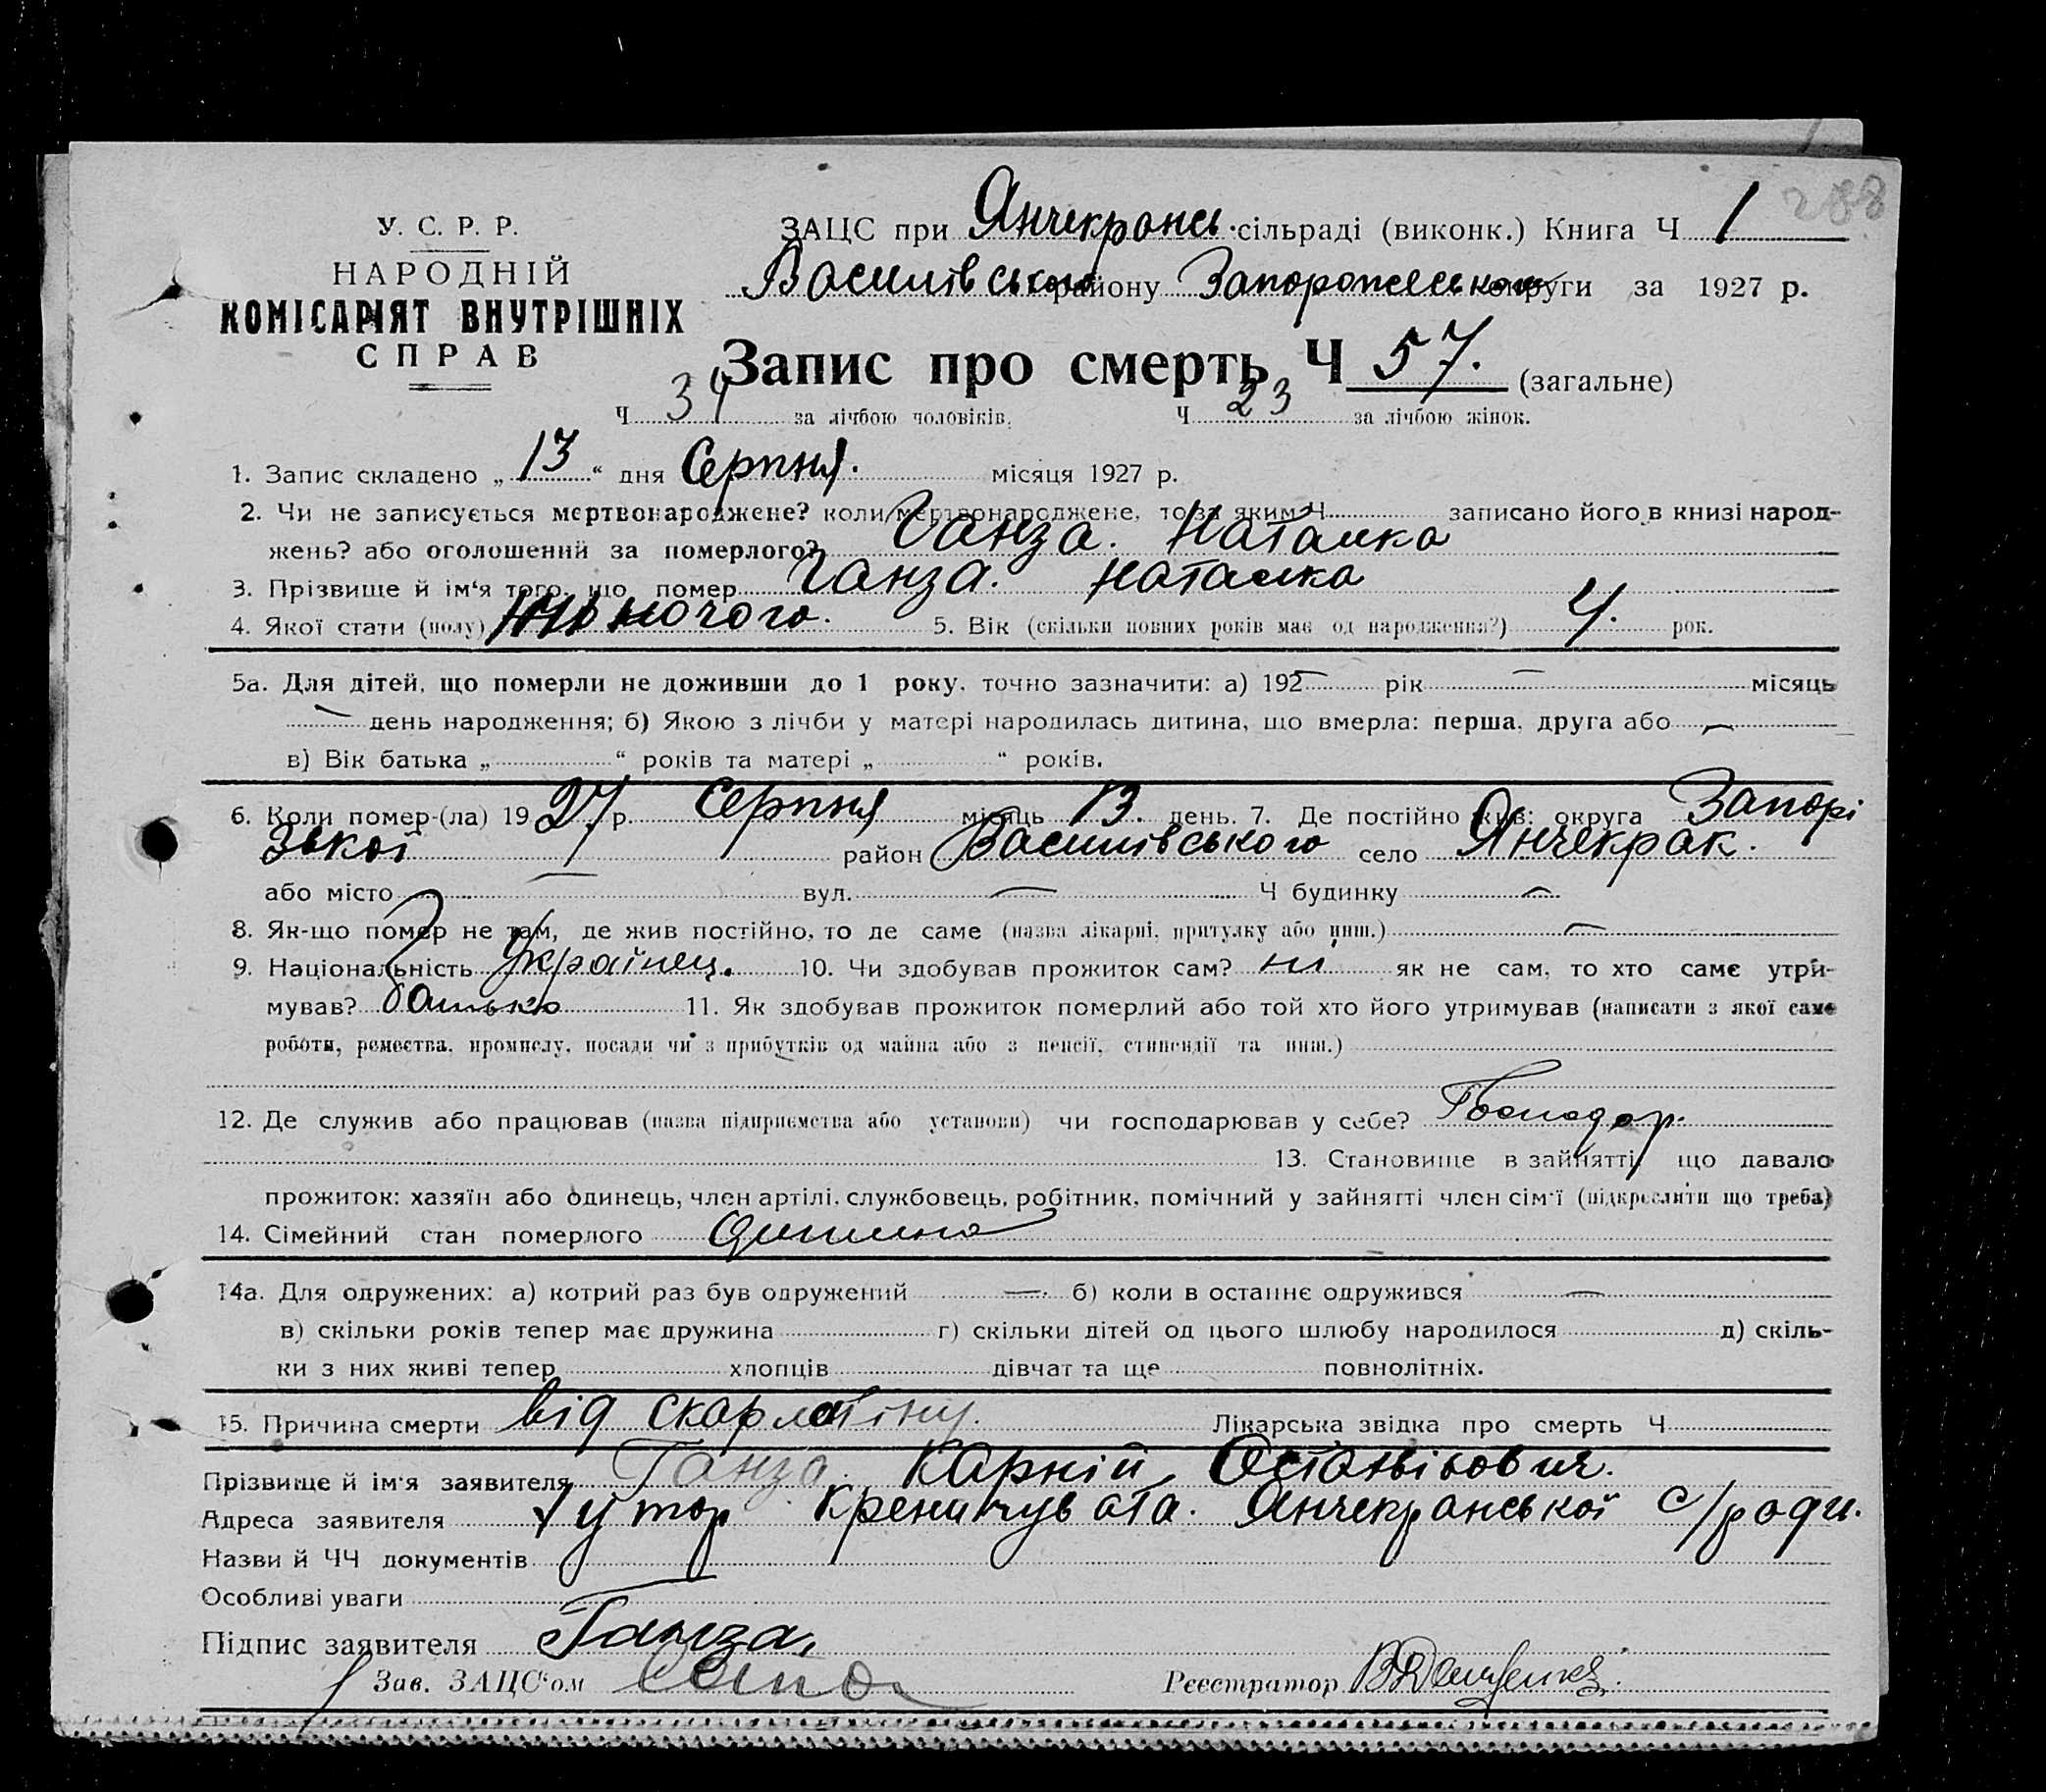 288
У. С. Р. Р.
НАРОДНІЙ
КОМІСАРІЯТ ВНУТРІШНІХ
СПРАВ
ЗАЦС при Янчекрансь. сільраді (виконк.) Книга Ч 1
Василівського району Запорожського округи за 1927 р.
Запис про смерть Ч 57. (загальне)
Ч 34 за лічбою чоловіків. Ч 23 за лічбою жінок.
1. Запис складено „ 13 “ дня Серпня. місяця 1927 р.
2. Чи не записується мертвонароджене? коли мертвонароджене, то за яким Ч записано його в книзі народ-
жень? або оголошений за померлого? Ганза. Наталка
3. Прізвище й ім‘я того, що помер Ганза. Наталка
4. Якої стати (полу) жіночого. 5. Вік (скільки повних років має од народження?) 4. рок.
5а. Для дітей, що померли не доживши до 1 року, точно зазначити: а) 192 — рік — місяць
— день народження; б) Якою з лічби у матері народилась дитина, що вмерла: перша, друга або —
в) Вік батька „ “ років та матері „ “ років.
6. Коли помер-(ла) 1927 р. Серпня місяць 13. день. 7. Де постійно жив: округа Запорі
зької район Василівського село Янчекрак.
або місто — вул. — Ч будинку —
8. Як-що помер не там, де жив постійно, то де саме (назва лікарні, притулку або инш.) —
9. Національність Українец. 10. Чи здобував прожиток сам? ні як не сам, то хто саме утри-
мував? батько 11. Як здобував прожиток померлий або той хто його утримував (написати з якої саме
роботи, ремества, промислу, посади чи з прибутків од майна або з пенсії, стипендії та инш.)
12. Де служив або працював (назва підприємства або установи) чи господарював у себе? Господар.
13. Становище в зайнятті, що давало
прожиток: хазяїн або одинець, член артілі, службовець, робітник, помічний у зайнятті член сім‘ї (підкреслити що треба)
14. Сімейний стан померлого дитина
14а. Для одружених: а) котрий раз був одружений — б) коли в останнє одружився —
в) скільки років тепер має дружина г) скільки дітей од цього шлюбу народилося д) скіль-
ки з них живі тепер хлопців дівчат та ще повнолітніх.
15. Причина смерти від скарлатіну. Лікарська звідка про смерть Ч
Прізвище й ім‘я заявителя Ганза Карній
Адреса заявителя Хутор Кременчувата. Янчекранської с/ради.
Назви й ЧЧ документів
Особливі уваги
Підпис заявителя Ганза,
Зав. ЗАЦС‘ом Реєстратор